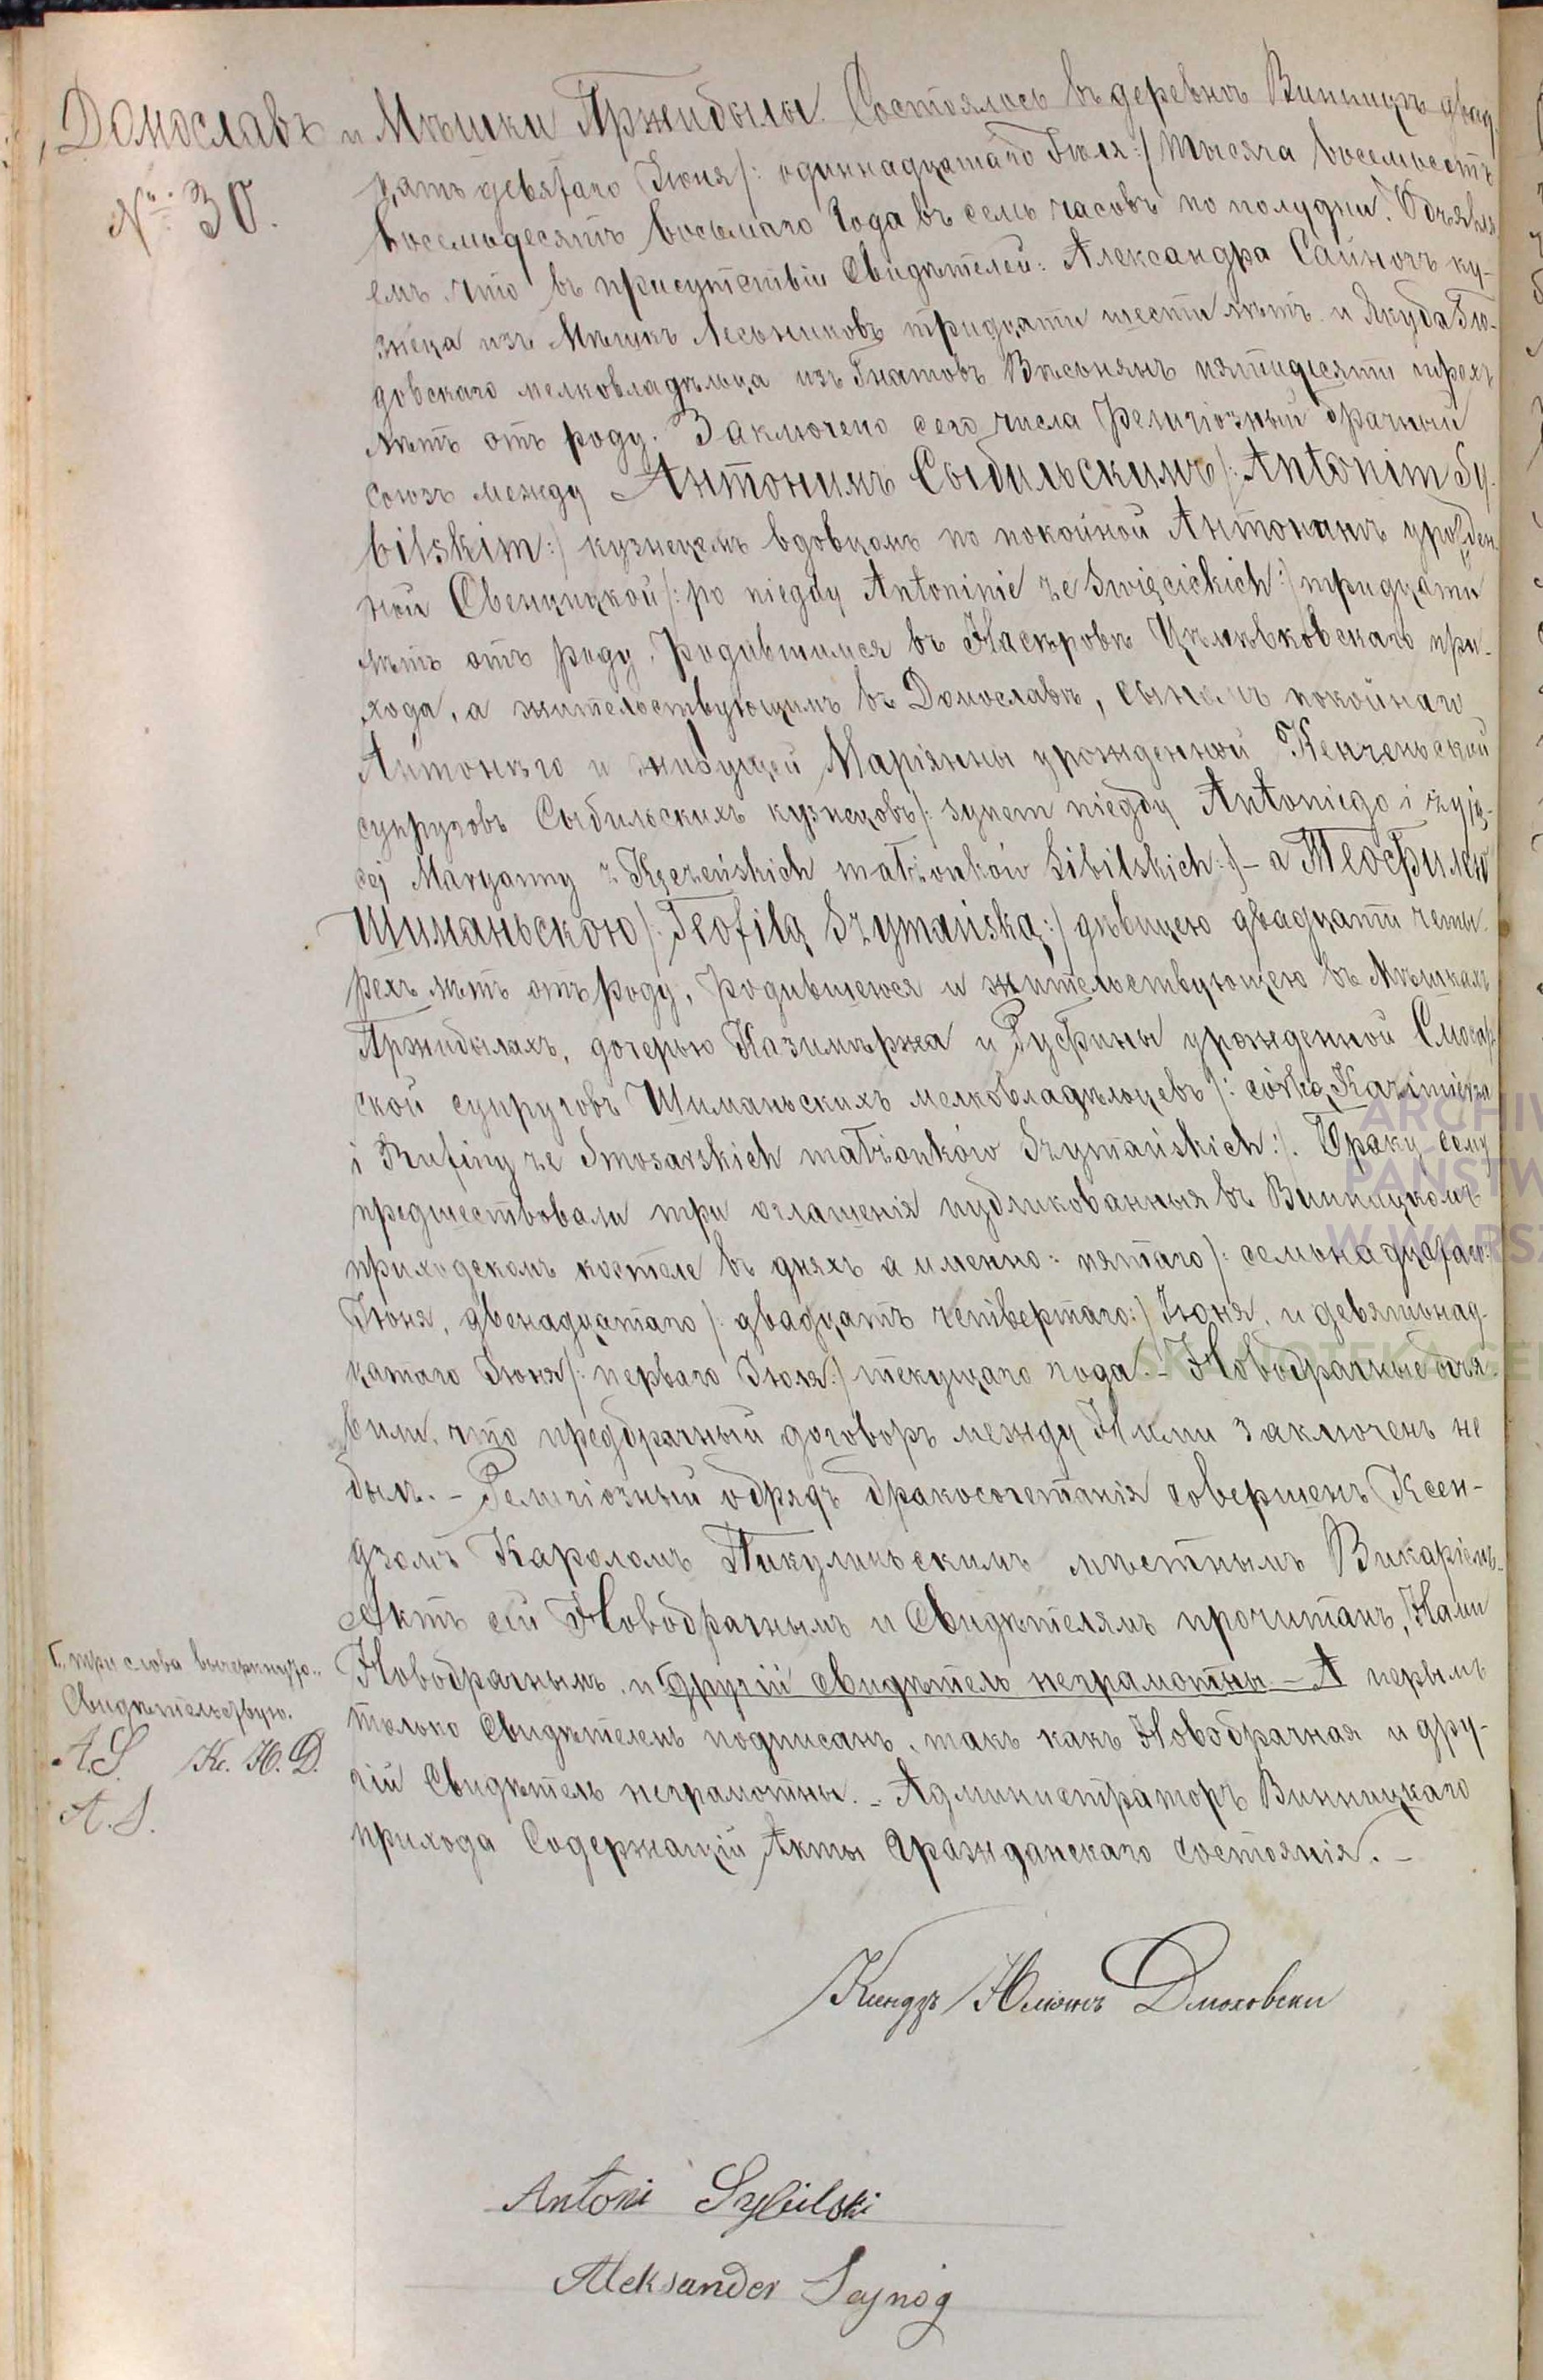 Домославъ и Мѣшки Пржибылы. Состоялось въ деревнѣ Винницѣ двад-
№ 30.
цать девятаго Іюня /: одиннадцатаго Іюля :/ тысяча восемьсотъ
восемьдесятъ восьмаго года въ семь часовъ по полудни. Объявля-
емъ что въ присутствіи Свидѣтелей: Александра Сайногъ ку-
знеца изъ Мѣшкъ Лесьниковъ тридцати шести лѣтъ и Якуба
довскаго мелковладѣльца изъ Гнатовъ пятидесяти трехъ
лѣтъ отъ роду. Заключено сего числа религіозный брачный
союзъ между Антонимъ Сыбильскимъ /: Antonim Sy-
bilskim :/ кузнецемъ вдовцомъ по покойной Антонинѣ урожден-
ной Свенцицкой /: po niegdy Antoninie ze Swięcickich :/ тридцати
лѣтъ отъ роду, родившимся въ при-
хода, а жительствующимъ въ Домославѣ, сыномъ покойнаго
Антонѣго и живущей Маріянны урожденной Кенченьской
супруговъ Сыбильскихъ кузнецовъ /: synem niegdy Antoniego i żyją-
cej Maryanny z Kęczeńskich małżonków Sibilskich :/ - а Теофилею
Шиманьскою /: Teofilą Szymańską :/ дѣвицею двадцати четы-
рехъ лѣтъ отъ роду, родившеюся и жительствующею въ Мѣшкахъ
Пржибылахъ, дочерью Казимѣржа и Руфины урожденной Смосар-
ской супруговъ Шиманьскихъ мелковладѣльцевъ /: córką Kazimierza
i Rufiny ze Smosarskich małżonków Szymańskich :/. Браку сему
предшествовали три оглашенія публикованныя въ Винницкомъ
приходскомъ костелѣ въ дняхъ а именно: пятаго /: семьнадцатаго :/
Іюня, двенадцатаго /: двадцать четвертаго :/ Іюня, и девятьнад-
цатаго Іюня /: перваго Іюля :/ текущаго года. - Новобрачные объя-
вили, что предбрачный договоръ между Ними заключенъ не
былъ. - Религіозный обрядъ бракосочетанія совершенъ Ксен-
дзомъ Кароломъ Пикулиньскимъ мѣстнымъ Викаріемъ. -
Актъ сей Новобрачнымъ и Свидѣтелямъ прочитанъ, Нами
Новобрачнымъ и другій свидѣтель неграмотны - А первымъ
только Свидѣтелемъ подписанъ, такъ какъ Новобрачная и дру-
гій Свидѣтель неграмотны. - Администраторъ Винницкаго
прихода Содержащій Акты Гражданскаго Состоянія. -
три слова вычеркнуто.
Свидѣтельствую.
A.S. Кс. Ю. Д.
A.S.
Ксендзъ Юліянъ Дмоховски
Antoni Sybilski
Aleksander Sajnog
ARCHIW
PAŃSTW
W WARSZ